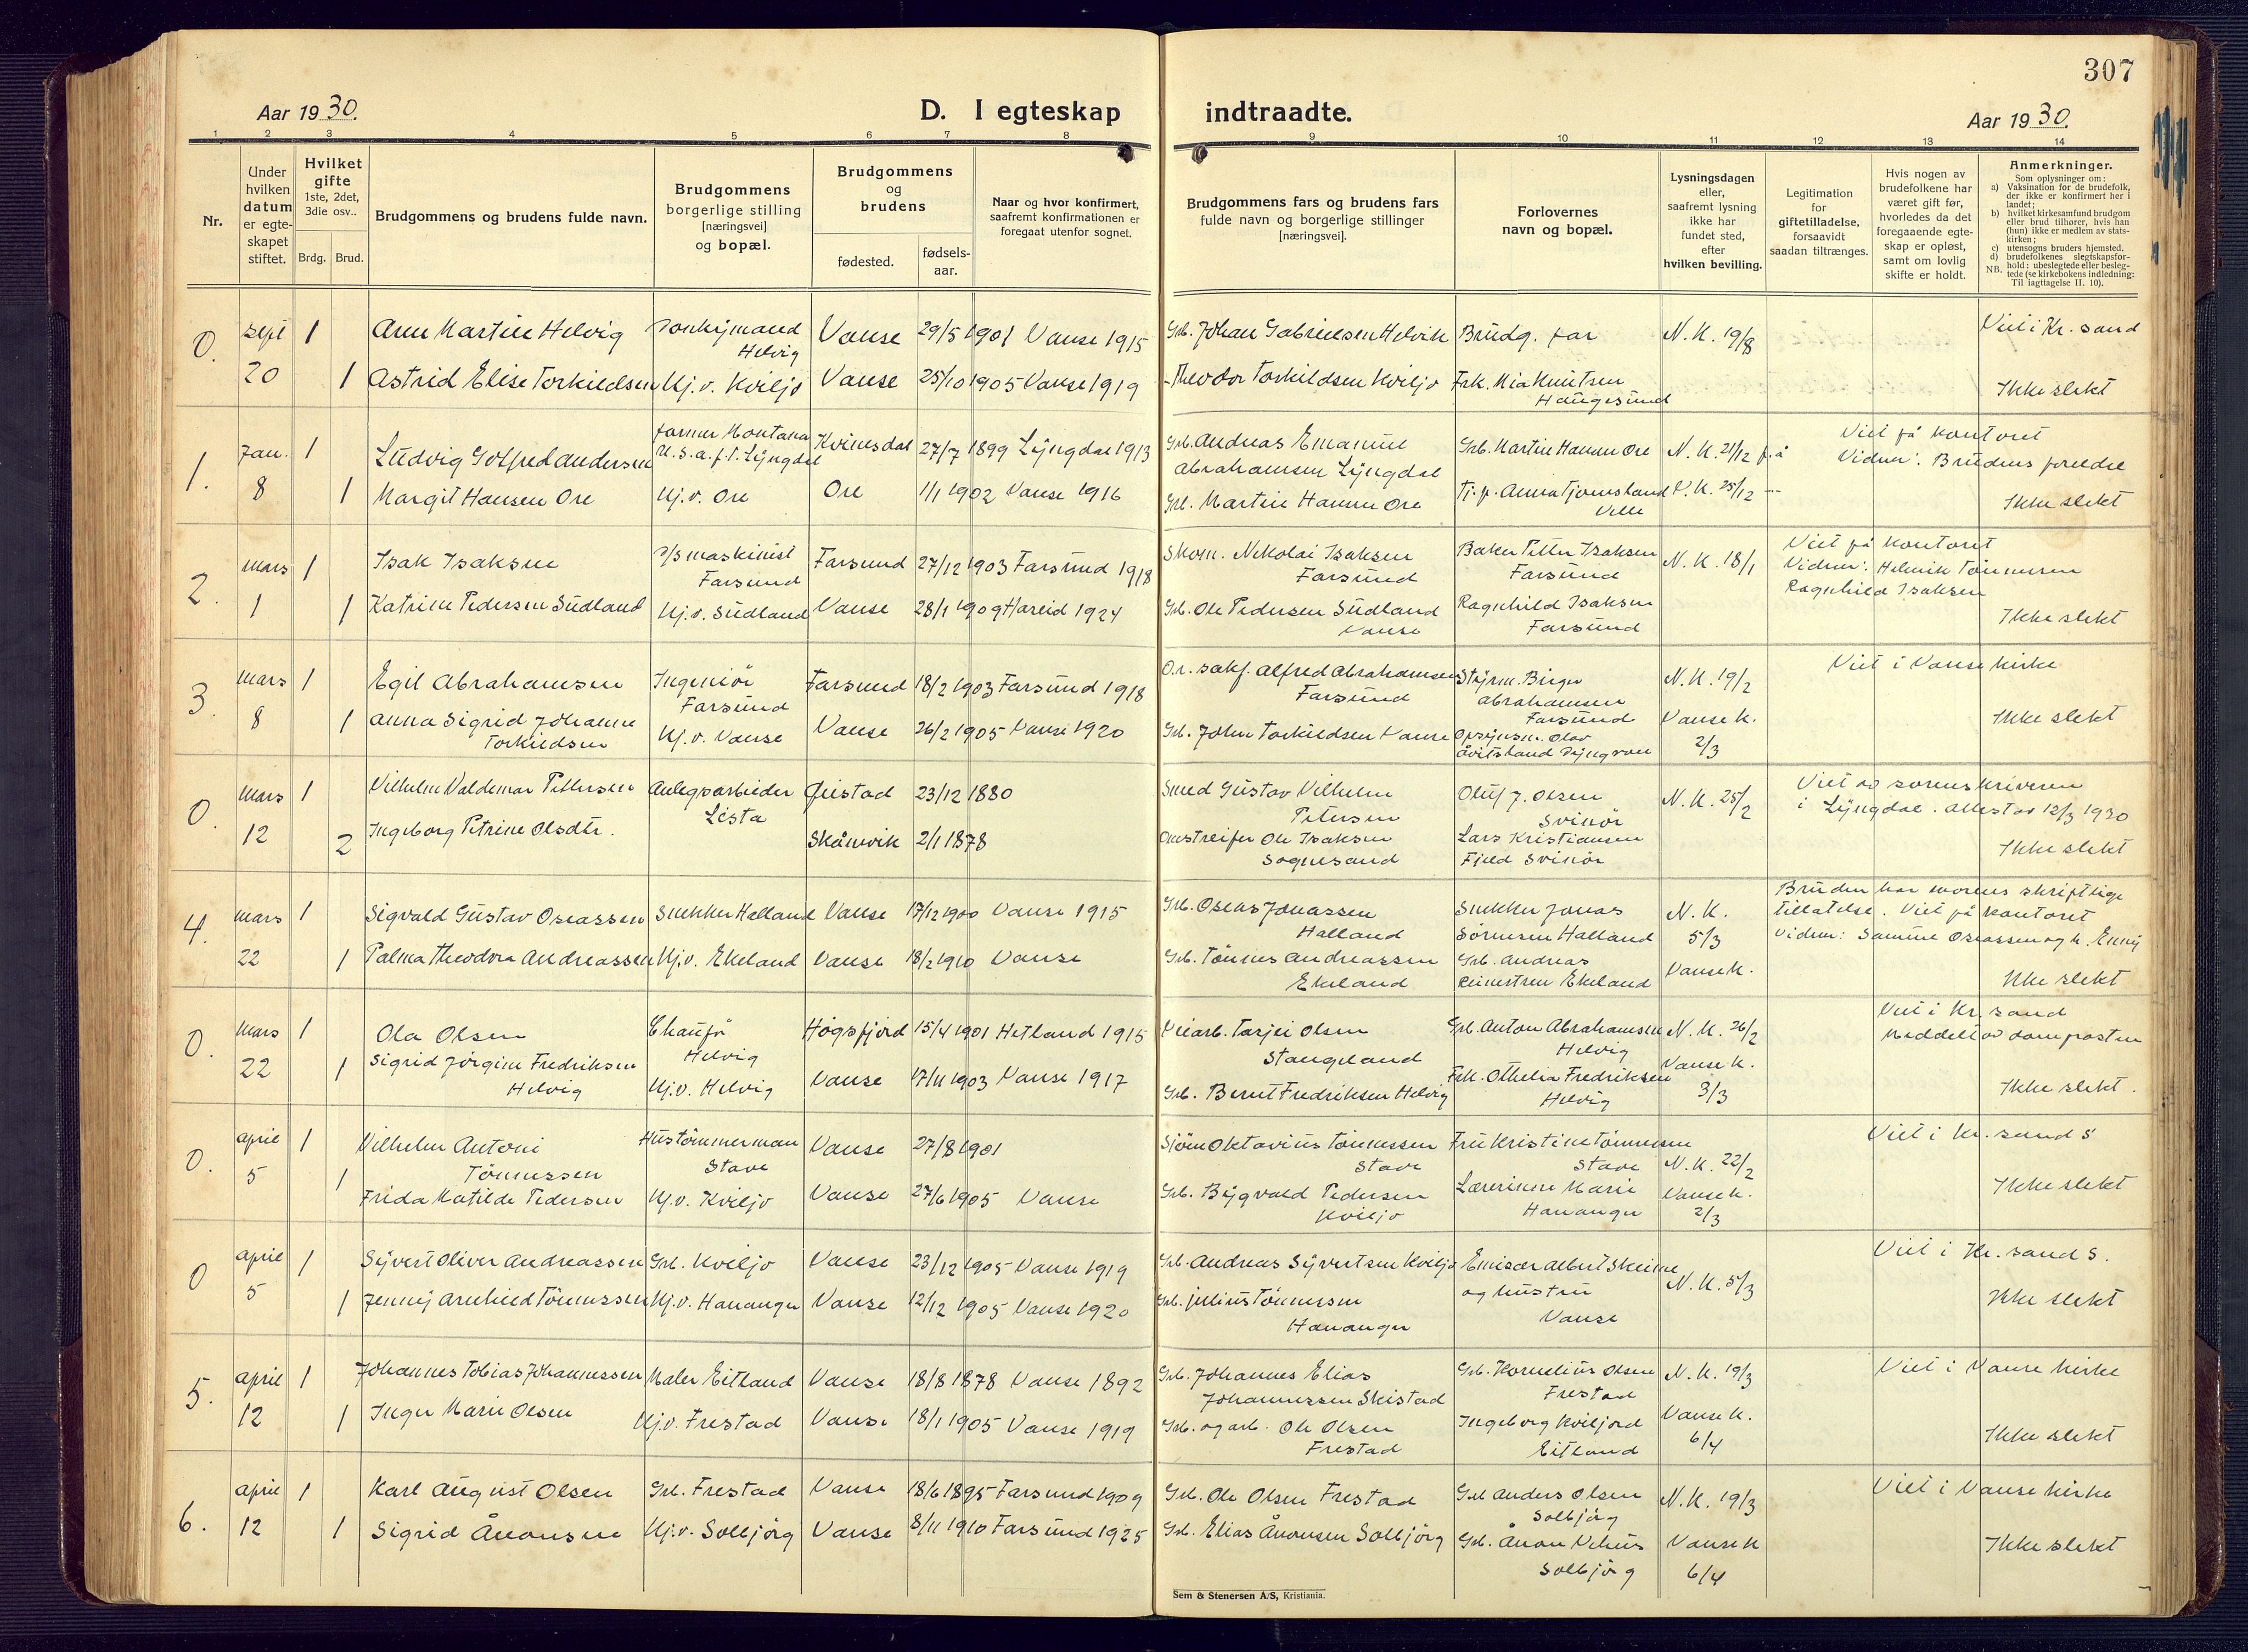 307
Aar 1930.
D. I egteskap indtraadte.
Aar 1930.
1 2 3 4 5 6 7 8 9 10 11 12 13 14
Nr.
Under hvilken datum er egte-skapet stiftet.
Hvilket gifte 1ste, 2det, 3die osv..
Brdg. Brud.
Brudgommens og brudens fulde navn.
Brudgommens borgerlige stilling [næringsvei] og bopæl.
Brudgommens og brudens
fødested.
fødsels-aar.
Naar og hvor konfirmert, saafremt konfirmationen er foregaat utenfor sognet.
Brudgommens fars og brudens fars fulde navn og borgerlige stillinger [næringsvei].
Forlovernes navn og bopæl.
Lysningsdagen eller, saafremt lysning ikke har fundet sted, efter hvilken bevilling.
Legitimation for giftetilladelse, forsaavidt saadan tiltrænges.
Hvis nogen av brudefolkene har været gift før, hvorledes da det foregaaende egte-skap er opløst, samt om lovlig skifte er holdt.
Anmerkninger.
Som oplysninger om:
a) Vaksination for de brudefolk, der ikke er konfirmert her i landet;
b) hvilket kirkesamfund brudgom eller brud tilhører, hvis han (hun) ikke er medlem av stats-kirken;
c) utensogns bruders hjemsted.
d) brudefolkenes slegtskapsfor-hold: ubeslegtede eller beslegtede (se kirkebokens indledning: Til iagttagelse II. 10).
NB.
0. Sept 1 Arne Martin Helvig Vanse 29/5 1901 Vanse 1915 Grb. Johan Gabrielsen Helvik Brudg. far N.K. 19/8 Viet i Kr.sand
Helvig
20 1 Astrid Elise Torkildsen Hj.v. Kviljo Vanse 25/10 1905 Vanse 1919 - Theodor Torkildsen Kviljo Frk. Mia Knutsen Ikke slekt
Haugesund
1. Jan. 1 Ludvig Gotfred Andersen farmer Montana Kvinesdal 27/7 1899 Lyngdal 1913 Grb. Andreas Emanuel Grb. Martin Hansen Ore N.K. 21/12 Viet på kontoret
U.S.A. f.t. Lyngdal Abrahamsen Lyngdal Vidner: Brudens foreldre
8 1 Margit Hansen Ore Hj.v. Ore Ore 1/1 1902 Vanse 1916 Grb. Martin Hansen Ore Anna Tjomsland V.K. 25/12 Ikke slekt
2. mars 1 Isak Isaksen D/S maskinist Farsund 27/12 1903 Farsund 1918 Skom. Nikolai Isaksen Baker Peter Isaksen N.K. 18/1 Viet på kontoret
Farsund Farsund Farsund Vidner: Henrik Tønnesen
1 1 Katrine Pedersen Sudland Hj.v. Sudland Vanse 28/1 1909 Hareid 1924 Grb. Ole Pedersen Sudland Ragnhild Isaksen Ragnhild Isaksen
Vanse Farsund Ikke slekt
3. mars 1 Egil Abrahamsen Ingeniør Farsund 18/2 1903 Farsund 1918 O.r. sakf. Alfred Abrahamsen Styrm. Birger N.K. 19/2 Viet i Vanse kirke
Farsund Farsund Abrahamsen
Farsund
8 1 Anna Sigrid Johanne Hj.v. Vanse Vanse 26/2 1905 Vanse 1920 Grb. John Torkildsen Vanse Opsynsm. Olav Vanse K. Ikke slekt
Torkildsen Åvitsland 2/3
0. mars 1 Vilhelm Valdemar Pettersen Anlegsarbeider 23/12 1880 Smed Gustav Vilhelm Oluf J. Olsen N.K. 25/2 Viet av sorenskriveren
Lista Petersen Svinør i Lyngdal. Attest av 12/3 1930
12 2 Ingeborg Petrine Olsdtr. Skånevik 2/1 1878 Omstreifer Ole Isaksen Lars Kristiansen
Sognesand Fjeld Svinør Ikke slekt
4. mars 1 Sigvald Gustav Oseassen Snekker Halland Vanse 17/12 1900 Vanse 1915 Grb. Oseas Jonassen Snekker Jonas N.K. Bruden har morens skriftlige
Halland Sørensen Halland 5/3 tillatelse. Viet på kontoret
22 1 Palma Theodora Andreassen Hj.v. Ekeland Vanse 18/2 1910 Vanse Grb. Tønnes Andreassen Grb. Andreas Vanse K. Vidner: Samuel Oseassen og h. Enny
Ekeland Ekeland Ikke slekt
0. mars 1 Ola Olsen Chaufør Høgsfjord 15/4 1901 Hetland 1915 Veiarb. Tarjei Olsen Grb. Anton Abrahamsen N.K. 26/2 Viet i Kr.sand
Helvig Stangeland Helvig Meddelt av domprosten
22 1 Sigrid Jørgine Fredriksen Hj.v. Helvig Vanse 17/11 1903 Vanse 1917 Grb. Bernt Fredriksen Helvig Frk. Othelia Fredriksen Vanse K. Ikke slekt.
Helvig Helvig 3/3
0. april 1 Vilhelm Antoni Hustømmerman Vanse 27/8 1901 Sjøm Oktavius Tønnessen Fru Kristine Tønnesen N.K. 22/2 Viet i Kr.sand S
Tønnessen Stave Stave Stave
5 1 Frida Matilde Pedersen Hj.v. Kviljo Vanse 27/6 1905 Vanse Grb. Bygvald Pedersen Lærerinne Marie Vanse K. Ikke slekt
Kviljo Hananger 2/3
0 april 1 Syvert Oliver Andreassen Grb. Kviljo Vanse 23/12 1905 Vanse 1919 Grb. Andreas Syvertsen Kviljo Emisær Albert Skeime N.K. 5/3 Viet i Kr.sand S.
og hustru
5 1 Jenny Arnhild Tønnessen Hj.v. Hananger Vanse 12/12 1905 Vanse 1920 Grb. Julius Tønnessen Vanse Ikke slekt
Hananger
5. april 1 Johannes Tobias Johannessen Maler Eitland Vanse 18/8 1878 Vanse 1892 Grb. Johannes Elias Grb. Kornelius Olsen N.K. 19/3 Viet i Vanse kirke
Johannessen Skistad Frestad
12 1 Inger Marie Olsen Hj.v. Frestad Vanse 18/1 1905 Vanse 1919 Grb. og arb. Ole Olsen Ingeborg Kviljord Vanse K. Ikke slekt
Frestad Eitland 6/4
6. april 1 Karl August Olsen Grb. Frestad Vanse 18/6 1895 Farsund 1909 Grb. Ole Olsen Frestad Grb Anders Olsen N.K. 19/3 Viet i Vanse kirke
Solbjørg
12 1 Sigrid Ånonsen Hj.v. Solbjørg Vanse 8/11 1910 Farsund 1925 Grb. Elias Ånonsen Solbjørg Grb. Ånon Solbjørg Vanse K 6/4 Ikke slekt
Sem & Stenersen A/S, Kristiania.